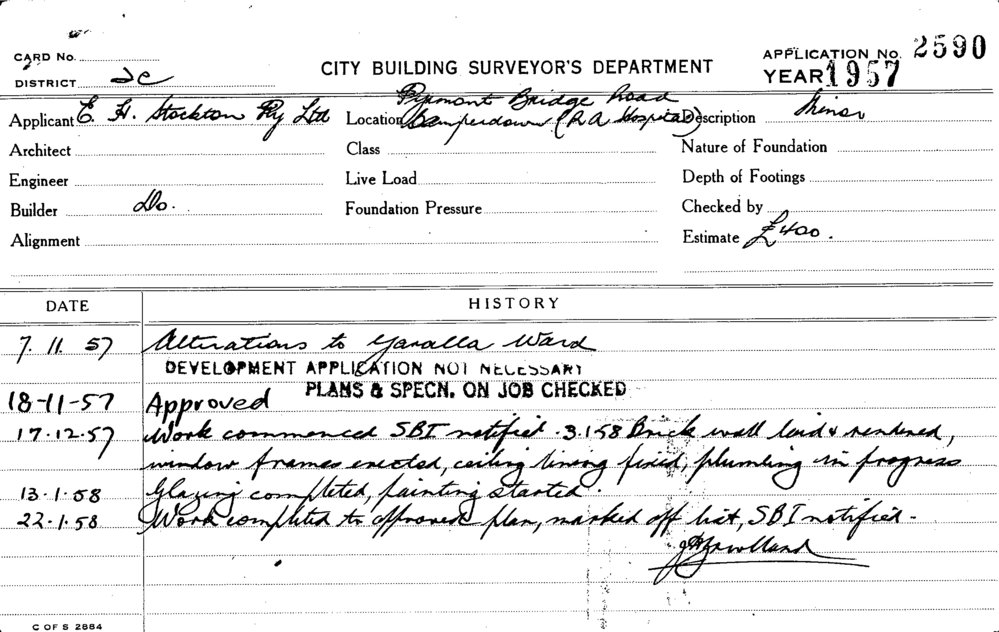 CARD No.
DISTRICT 2C
CITY BUILDING SURVEYOR'S DEPARTMENT
APPLICATION No. 2590
YEAR 1957
Applicant E. H. Stockton Pty Ltd
Location Pyrmont Bridge Road
Camperdown (R A Hospital)
Description Minor
Architect
Class
Nature of Foundation
Engineer
Live Load
Depth of Footings
Builder Do.
Foundation Pressure
Checked by
Alignment
Estimate £400.
DATE HISTORY
7. 11. 57 Alterations to Yaralla Ward
DEVELOPMENT APPLICATION NOT NECESSARY
PLANS & SPECN. ON JOB CHECKED
18-11-57 Approved
17.12.57 Work commenced SBI notified. 3.1.58 Brick wall laid & rendered,
window frames erected, ceiling lining fixed, plumbing in progress
13.1.58 Glazing completed, painting started.
22.1.58 Work completed to approved plan, marked off list, SBI notified.
C OF S 2884